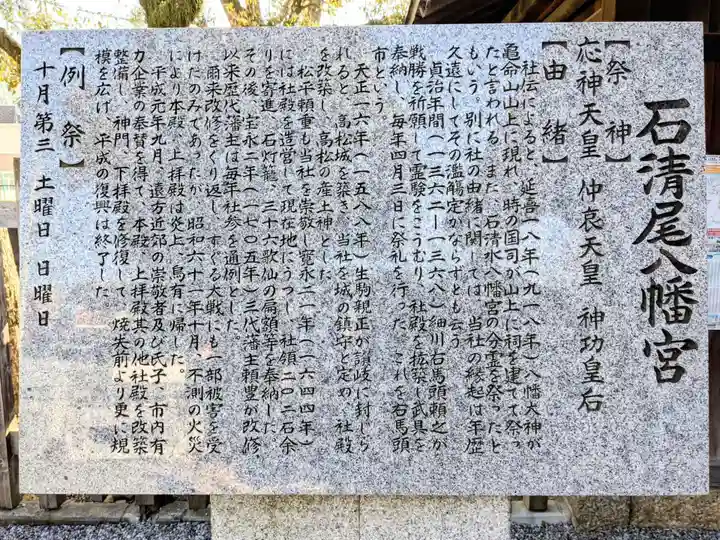 石清尾八幡宮
【祭神】
応神天皇 仲哀天皇 神功皇后
【由緒】
社伝によると、延喜一八年(九一八年)八幡大神が
亀命山山上に現れ、時の国司が山上に祠を建てて祭っ
たと言われる。また、石清水八幡宮の分霊を祭ったと
もいう。別に社の由緒に関しては、当社の縁起は年歴
久遠にしてその濫觴定かならずとも云う。
貞治年間(一三六二ー一三六八)細川右馬頭頼之が
戦勝を祈願して霊験をこうむり、社殿を拡築し武具を
奉納し、毎年四月三日に祭礼を行った。これを右馬頭
市という。
天正一六年(一五八八年)生駒親正が讃岐に封じら
れると、高松城を築き、当社を城の鎮守と定め、社殿
を改築し、高松の産土神とした。
松平頼重も当社を崇敬し寛永二一年(一六四四年)
には社殿を造営して現在地にうつし、社領二〇二石余
りを寄進、石灯籠、三十六歌仙の扁額等を奉納した。
その後、宝永二年(一七〇五年)三代藩主頼豊が改修、
以来歴代藩主は毎年社参を通例とした。
爾来改修をくり返し、すぐる大戦にも一部被害を受
けたのみであったが、昭和六十一年十月、不測の火災
により本殿、上拝殿は炎上、烏有に帰した。
平成元年九月、遠方近郊の崇敬者及び氏子、市内有
力企業の奉賛を得て、本殿、上拝殿其の他社殿を改築
整備し、神門、下拝殿を修復して、焼失前より更に規
模を広げ、平成の復興は終了した
【例祭】
十月第三 土曜日 日曜日